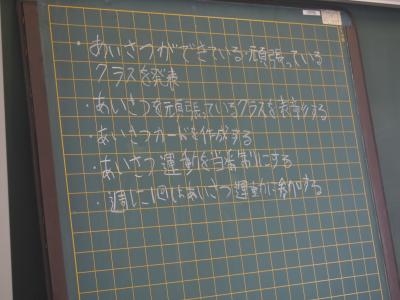 ・あいさつができている・頑張っている
クラスを発表
・あいさつを頑張っているクラスを表彰する
・あいさつカードを作成する
・あいさつ運動を当番制にする
・週に1回はあいさつ運動に参加する